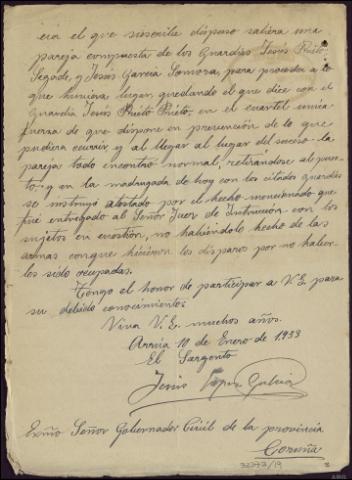 era el que suscribe dispuso saliera una
pareja compuesta de los Guardias Jesús Prieto
Segade, y Jesús García Somoza, para proceder a lo
que hubiera lugar, quedando el que dice con el
Guardia Jesús Prieto Prieto, en el cuartel unica
fuerza de que dispone en prevención de lo que
pudiera ocurrir, y al llegar al lugar del suceso la
pareja todo encontró normal, retirandose al pues-
to, y en la madrugada de hoy con los citados guardias
se instruyó atestado por el hecho mencionado que
fué entregado al Señor Juez de Instrucción con los
sujetos en cuestión, no habiendole hecho de las
armas conque hicieron los disparos por no haber-
les sido ocupadas.
Tengo el honor de participar a V.E. para
su debido conocimiento.
Viva V.E. muchos años.
Arzúa 10 de Enero de 1933
El Sargento
Jesús López Galicia
Exmo Señor Gobernador Civil de la provincia
Coruña
32373/19